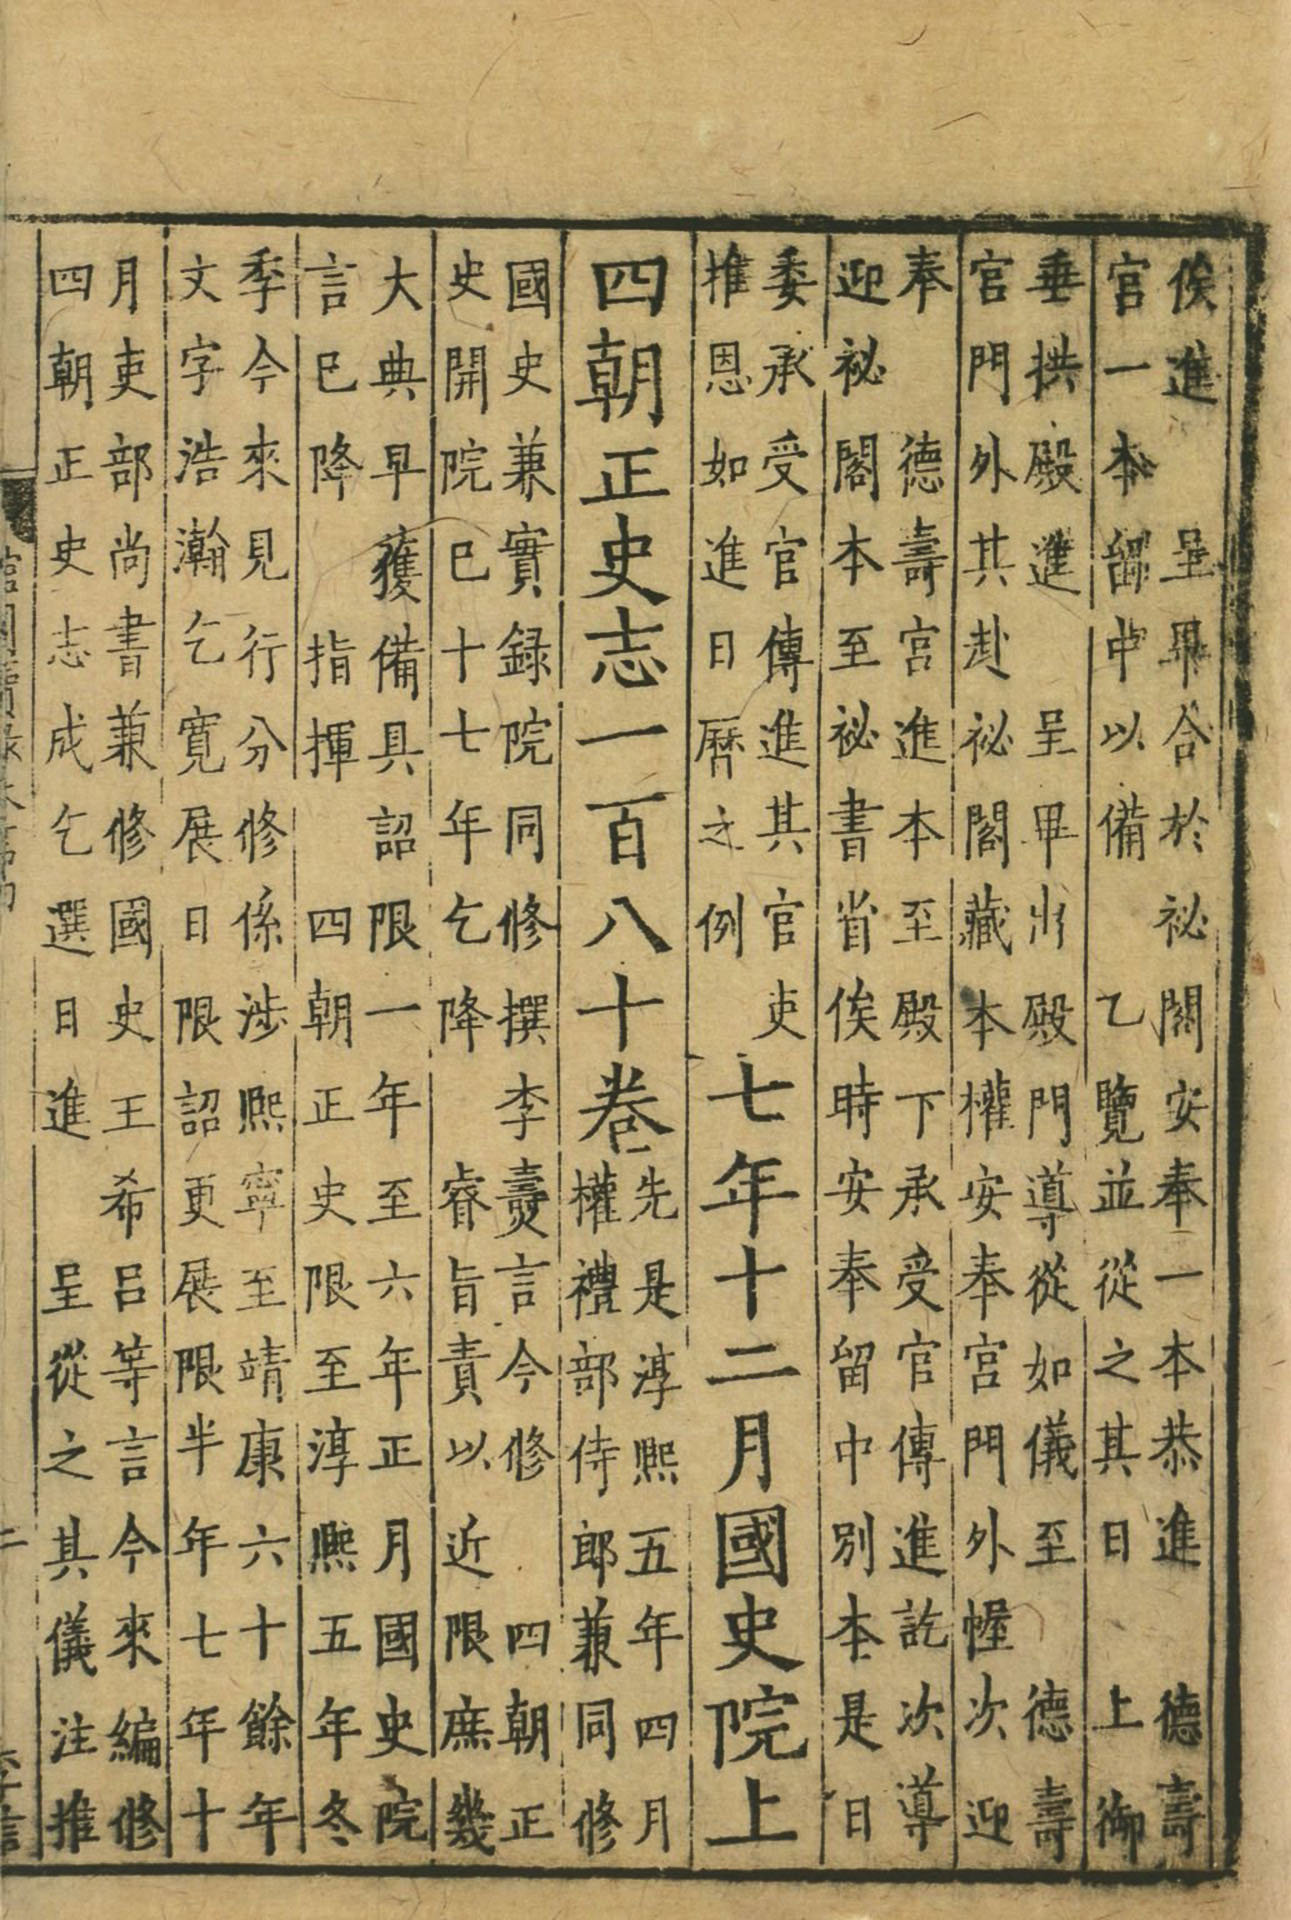 俟進　呈畢合於祕閣安奉一本恭進　德壽
宮一本留中以備　乙覽並從之其日　上御
垂拱殿進　呈畢出殿門導從如儀至　德壽
宮門外其赴祕閣藏本權安奉宮門外幄次迎
奉　德壽宮進本至殿下承受官傳進訖次導
迎祕閣本至祕書省俟時安奉留中別本是日
委承受官傳進其官吏
推恩如進日曆之例
七年十二月國史院上
四朝正史志一百八十卷
先是淳熙五年四月
權禮部侍郎兼同修
國史兼實録院同修撰李燾言今修　四朝正
史開院已十七年乞降　睿旨責以近限庶幾
大典早獲備具詔限一年至六年正月國史院
言已降　指揮　四朝正史限至淳熙五年冬
季今來見行分修係涉熙寧至靖康六十餘年
文字浩瀚乞寬展日限詔更展限半年七年十
月吏部尚書兼修國史王希呂等言今來編修
四朝正史志成乞選日進　呈從之其儀注推